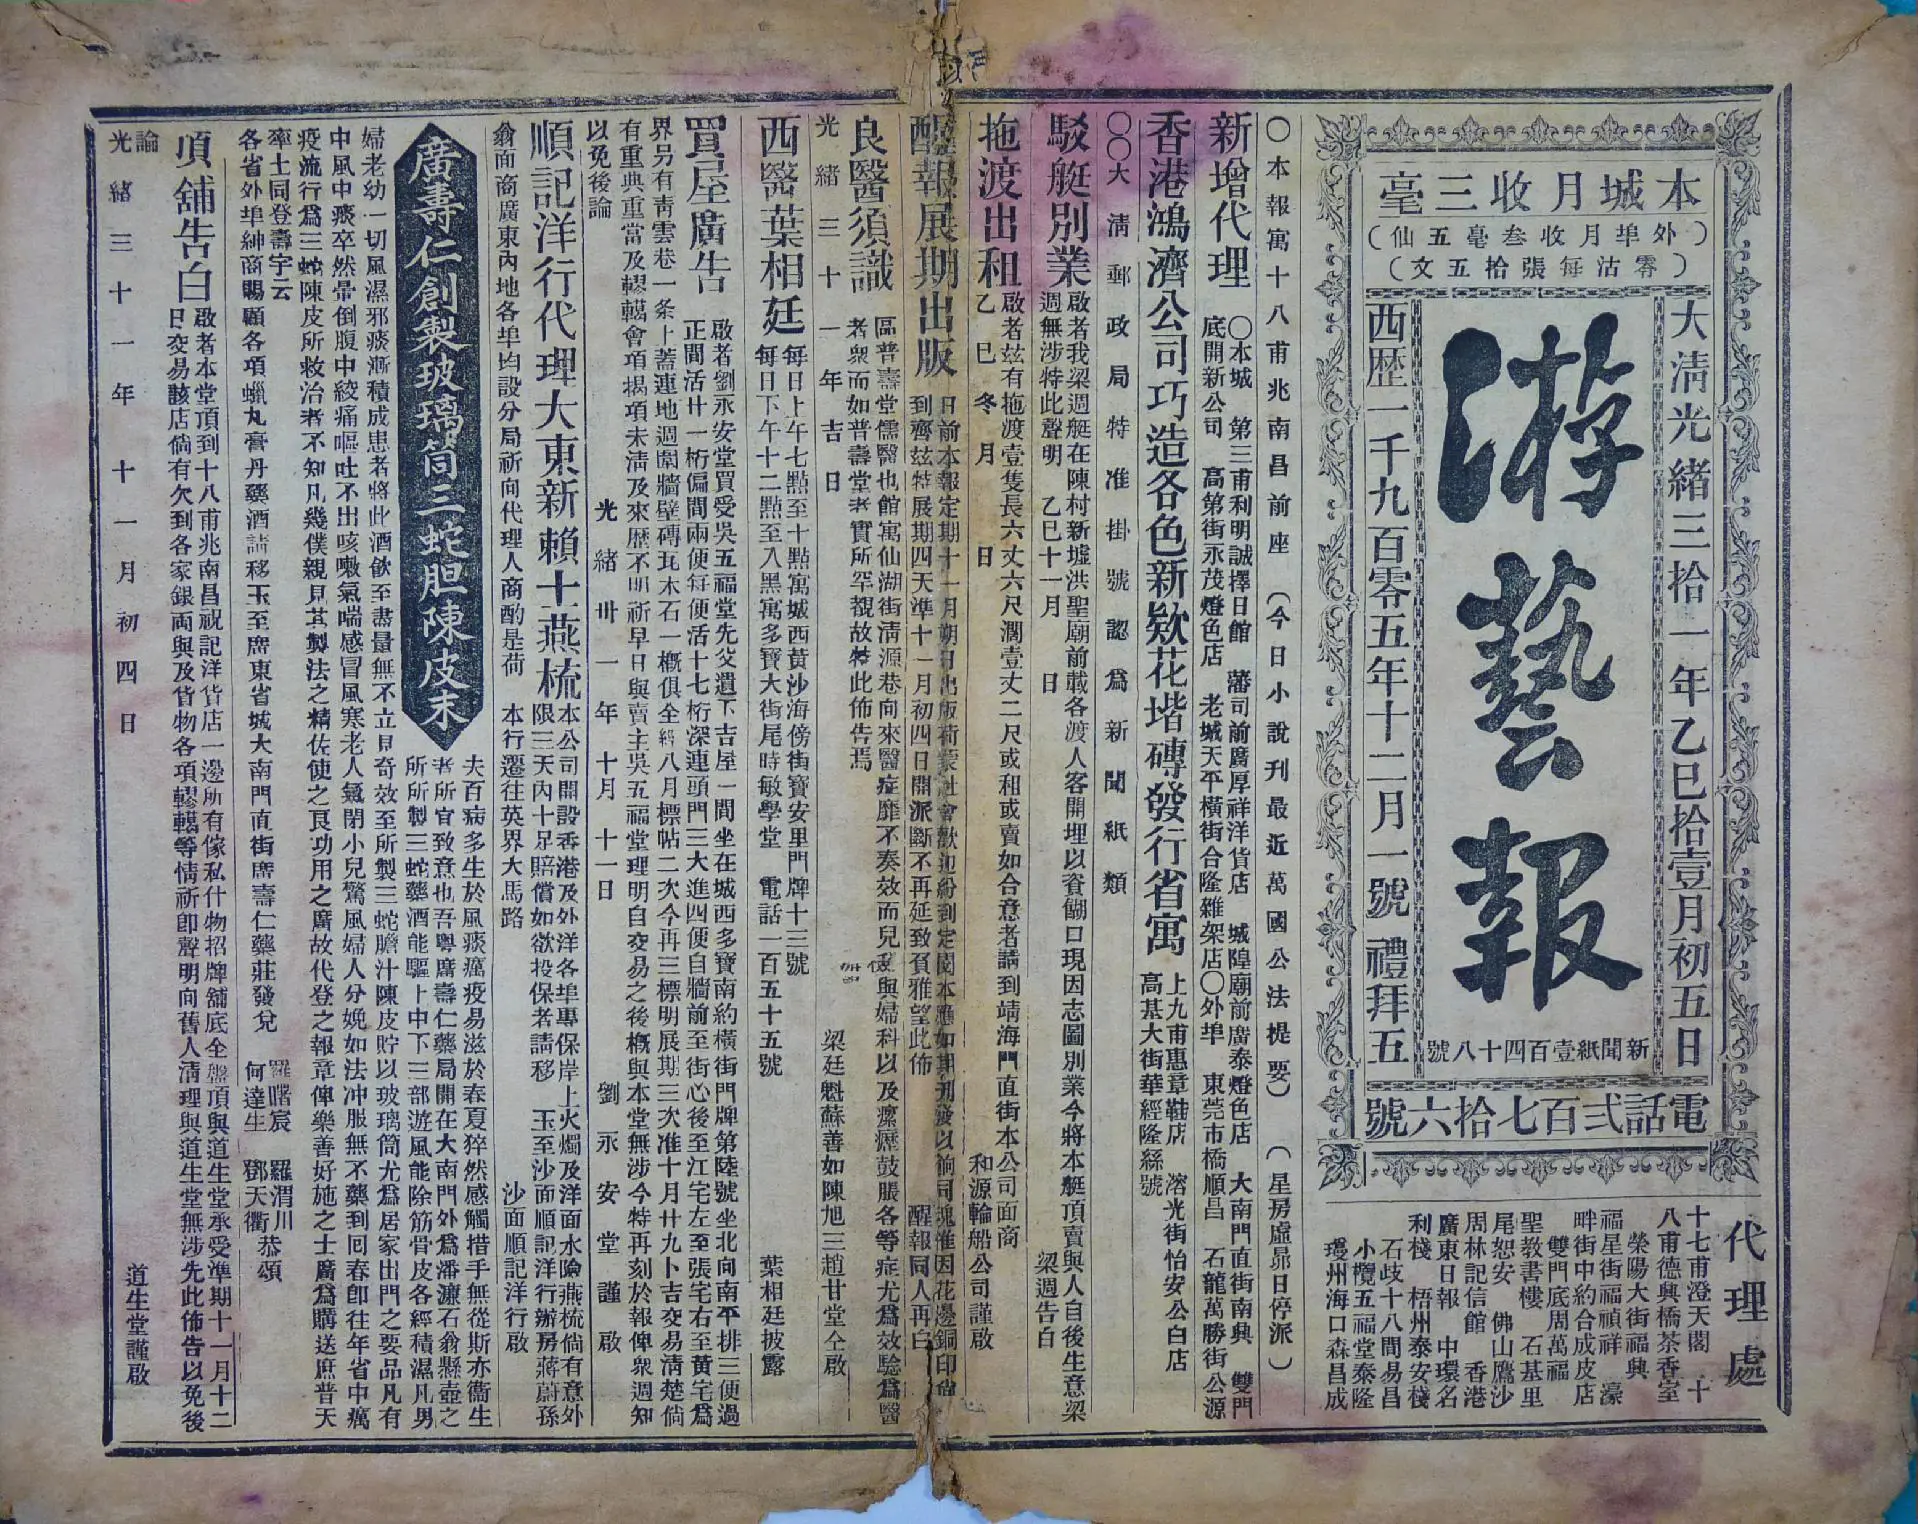 本城月收三毫
(外埠月收叁毫五仙)
(零沽每張拾五文)
大清光緒三拾一年乙巳拾壹月初五日
游藝報
西歷一千九百零五年十二月一號 禮拜五
新聞紙壹百四十八號
電話弍百七拾六號
代理處
十七甫澄天閣 十
八甫德興橋茶香室
榮陽大街福興
福星街福禎祥 濠
畔街中約合成皮店
雙門底周萬福
聖教書樓 石基里
尾恕安 佛山鷹沙
周林記信館 香港
廣東日報 中環名
利棧 梧州泰安棧
石歧十八間易昌
小欖五福堂泰隆
瓊州海口森昌成
〇本報寓十八甫兆南昌前座 (今日小說刊最近萬國公法提要) (星房虛昴日停派)
新增代理
〇本城 第三甫利明誠擇日館 藩司前廣厚祥洋貨店 城隍廟前廣泰燈色店 大南門直街南興 雙門
底開新公司 高第街永茂燈色店 老城天平橫街合隆雜架店〇外埠 東莞市橋順昌 石龍萬勝街公源
香港鴻濟公司巧造各色新欵花堦磚發行省寓
上九甫惠章鞋店 溶光街怡安公白店
高基大街華經隆絲號
〇〇大清郵政局特准掛號認為新聞紙類
駁艇別業
啟者我梁週艇在陳村新墟洪聖廟前載各渡人客開埋以資餬口現因志圖別業今將本艇頂賣與人自後生意梁
週無涉特此聲明 乙巳十一月 日 梁週告白
拖渡出租
啟者茲有拖渡壹隻長六丈六尺濶壹丈二尺或租或賣如合意者請到靖海門直街本公司面商
乙巳冬月 日 和源輪船公司謹啟
醒報展期出版
日前本報定期十一月朔日出版荷蒙社會歡迎紛到定閱本應如期刊發以餉同塊惟因花邊銅印尙
到齊茲特展期四天準十一月初四日開派斷不再延致負雅望此佈 醒報同人再白
良醫須識
區普壽堂儒醫也館寓仙湖街淸源巷向來醫症靡不奏效而兒科與婦科以及瘰癧鼓脹各等症尤為效驗為醫
者衆而如普壽堂者實所罕覩故特此佈告焉
光緒三十一年吉日 梁廷魁蘇善如陳旭三趙甘堂仝啟
西醫葉相廷
每日上午七點至十點寓城西黃沙海傍街寶安里門牌十三號
每日下午十二點至入黑寓多寶大街尾時敏學堂 電話一百五十五號 葉相廷披露
買屋廣告
啟者劉永安堂買受吳五福堂先父遺下吉屋一間坐在城西多寶南約橫街門牌第陸號坐北向南平排三便過
正間活廿一桁偏間兩便每便活十七桁深連頭門三大進四便自牆前至街心後至江宅左至張宅右至黃宅為
界另有靑雲巷一条上蓋連地週圍牆壁磚瓦木石一概俱全經八月標帖二次今再三標明展期三次准十月廿九卜吉交易淸楚倘
有重典重當及轇轕會項揭項未淸及來歷不明祈早日與賣主吳五福堂理明自交易之後概與本堂無涉今特再刻於報俾衆週知
以免後論 光緒卅一年十月十一日 劉永安堂謹啟
順記洋行代理大東新賴十燕梳
本公司開設香港及外洋各埠專保岸上火燭及洋面水險燕梳倘有意外
限三天內十足賠償如欲投保者請移 玉至沙面順記洋行辦房蔣蔚孫
翁面商廣東內地各埠均設分局祈向代理人商酌是荷 本行遷往英界大馬路 沙面順記洋行啟
廣壽仁創製玻璃筒三蛇胆陳皮末
夫百病多生於風痰癘疫易滋於春夏猝然感觸措手無從斯亦衞生
者所宜致意也吾粵廣壽仁藥局開在大南門外為潘濂石翁懸壺之
所所製三蛇藥酒能驅上中下三部遊風能除筋骨皮各經積濕凡男
婦老幼一切風濕邪痰漸積成患者將此酒飲至盡量無不立見奇效至所製三蛇膽汁陳皮貯以玻璃筒尤為居家出門之要品凡有
中風中痰卒然暈倒腹中絞痛嘔吐不出咳嗽氣喘感冒風寒老人氣閉小兒驚風婦人分娩如法冲服無不藥到囘春卽往年省中癘
疫流行為三蛇陳皮所救治者不知凡幾僕親見其製法之精佐使之良功用之廣故代登之報章俾樂善好施之士廣為購送庶普天
率土同登壽宇云
各省外埠紳商賜顧各項蠟丸膏丹藥酒請移玉至廣東省城大南門直街廣壽仁藥莊發兌 羅曙宸 羅渭川
何達生 鄧天衢恭頌
項舖告白
啟者本堂頂到十八甫兆南昌祝記洋貨店一邊所有傢私什物招牌舖底全盤頂與道生堂承受準期十一月十二
日交易該店倘有欠到各家銀両與及貨物各項轇轕等情祈卽聲明向舊人淸理與道生堂無涉先此佈告以免後
論
光緒三十一年十一月初四日 道生堂謹啟